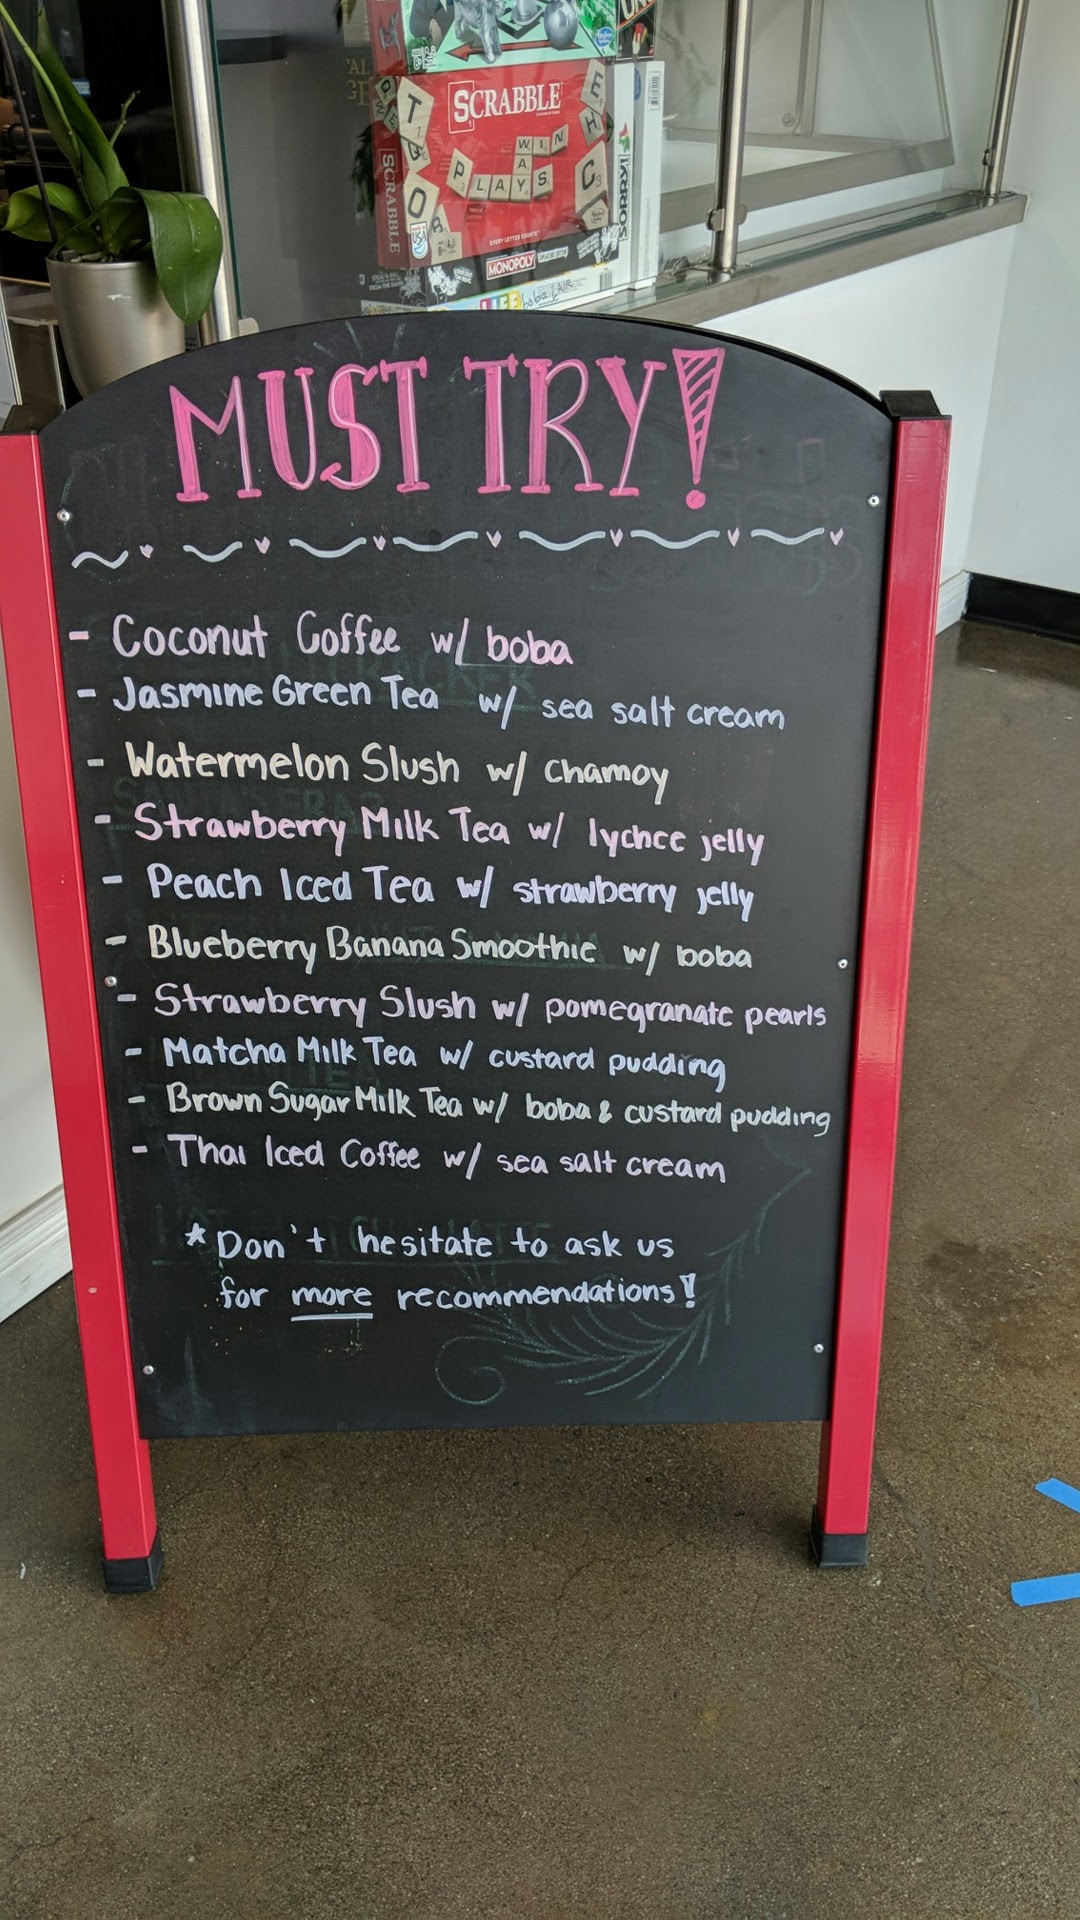 UNO
SCRABBLE
T
O
B
O
E
H
C
WIN
A
PLAYS
SCRABBLE
MADE IN USA
EVERY LETTER COUNTS
MONOPOLY
SORRY!
LIFE
boba LAIR
MUST TRY!
- Coconut Coffee w/ boba
- Jasmine Green Tea w/ sea salt cream
- Watermelon Slush w/ chamoy
- Strawberry Milk Tea w/ lychee jelly
- Peach Iced Tea w/ strawberry jelly
- Blueberry Banana Smoothie w/ boba
- Strawberry Slush w/ pomegranate pearls
- Matcha Milk Tea w/ custard pudding
- Brown Sugar Milk Tea w/ boba & custard pudding
- Thai Iced Coffee w/ sea salt cream
* Don't hesitate to ask us
for more recommendations!